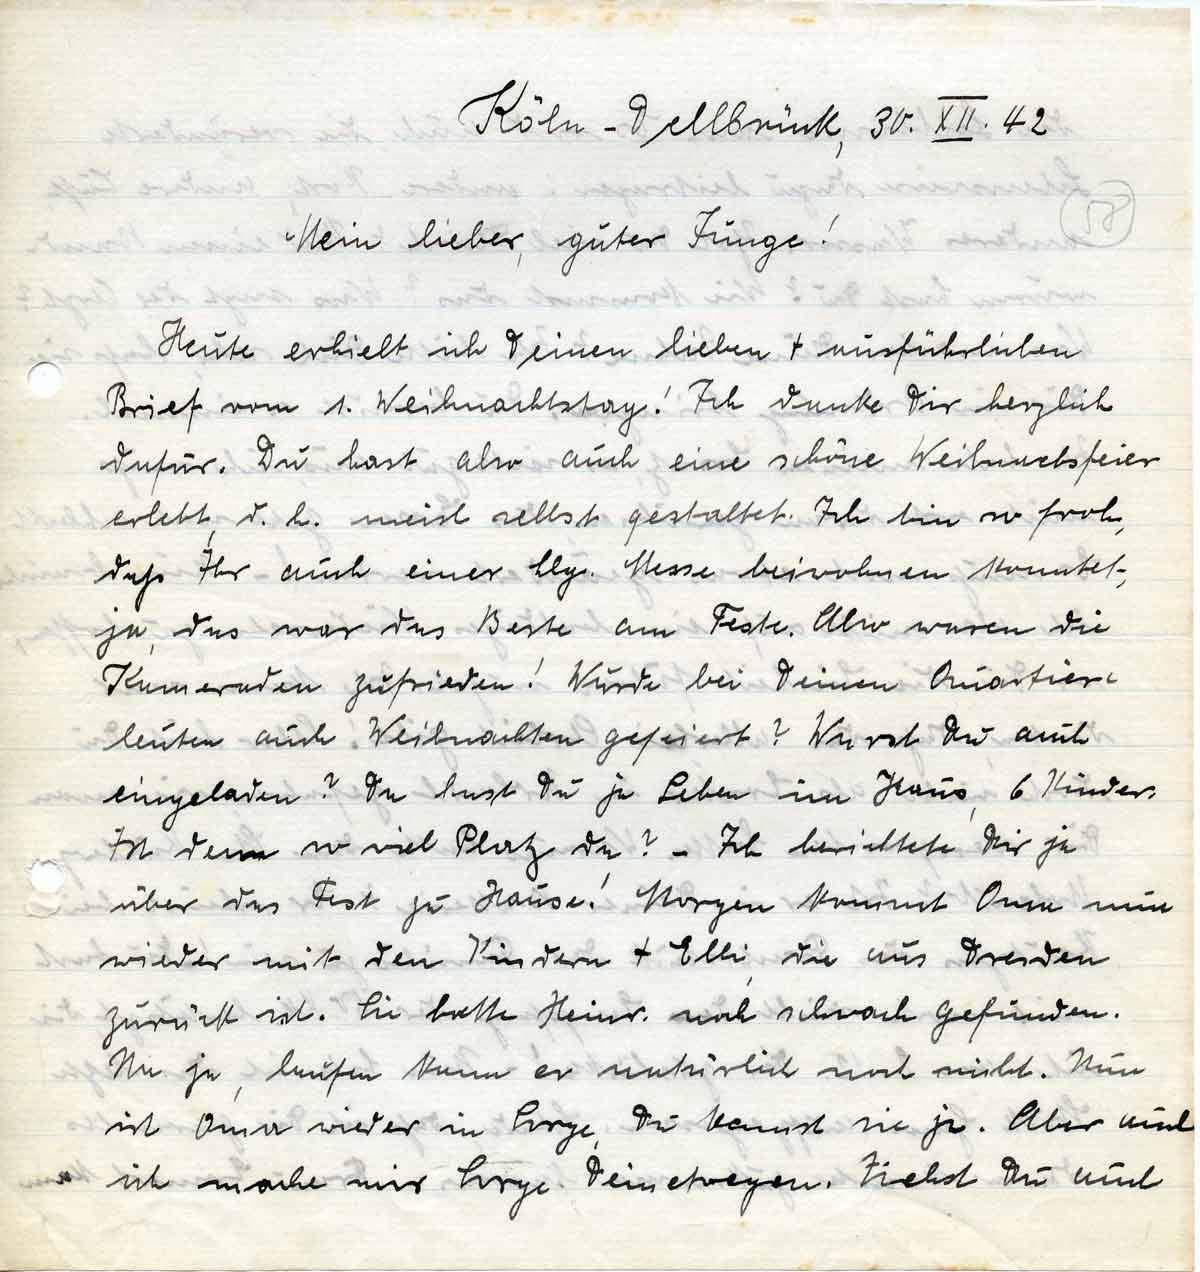 Köln-Dellbrück, 30. XII. 42
58
Mein lieber, guter Junge!
Heute erhielt ich Deinen lieben + ausführlichen
Brief vom 1. Weihnachtstag! Ich danke Dir herzlich
dafür. Du hast also auch eine schöne Weihnachtsfeier
erlebt, d. h. meist selbst gestaltet. Ich bin so froh,
daß Ihr auch einer hlg. Messe beiwohnen konntet,
ja, das war das Beste am Feste. Also waren die
Kameraden zufrieden! Wurde bei Deinen Quartier-
leuten auch Weihnachten gefeiert? Warst Du auch
eingeladen? Da hast Du ja Leben im Haus, 6 Kinder.
Ist denn so viel Platz da? - Ich berichtete Dir ja
über das Fest zu Hause! Morgen kommt Oma nun
wieder mit den Kindern + Elli, die aus Dresden
zurück ist. Sie hatte Heinr. noch schwach gefunden.
Na ja, laufen kann er natürlich noch nicht. Nun
ist Oma wieder in Sorge, Du kennst sie ja. Aber auch
ich mache mir Sorge Deinetwegen. Ziehst Du auch